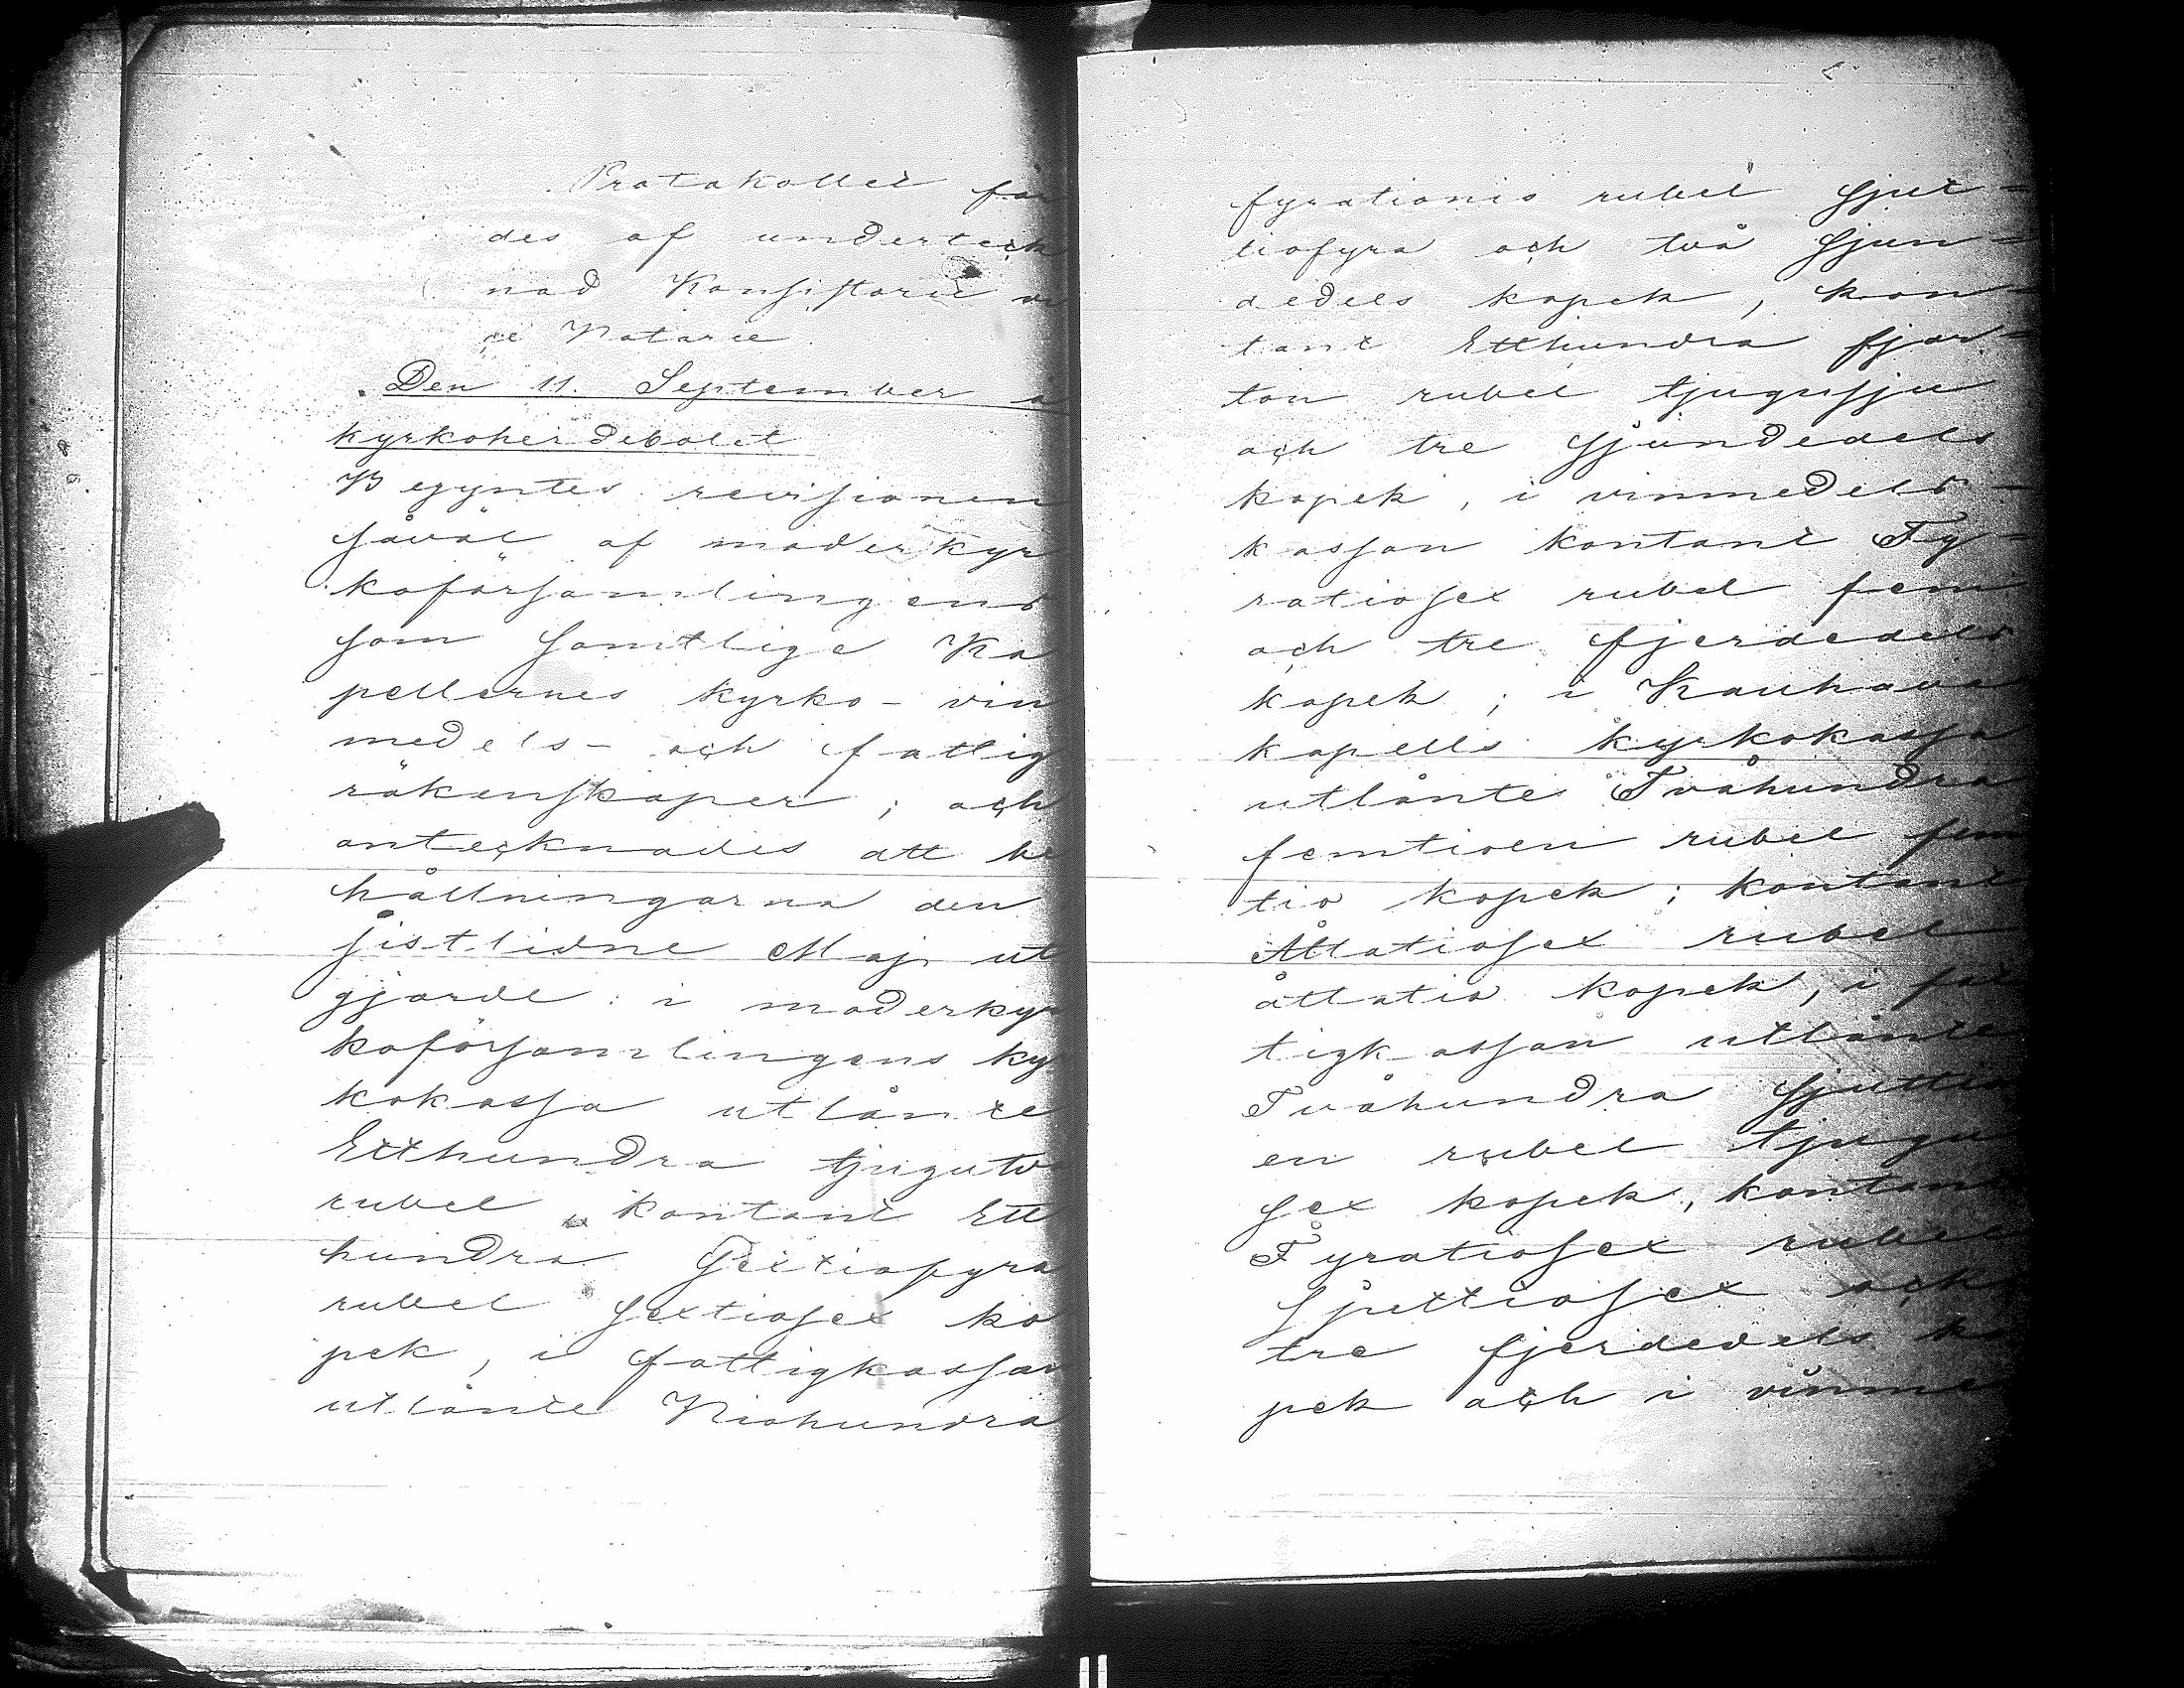 Protokollet för
des af underteck
nad Konsistorie vi
ce Notarie.
Den 11. September i
kyrkoherdebolet
Begyntes revisionen
såväl af moderkyr
koförsamlingens
som samtlige Ka
pellernes kyrko- vin
medels- och fattig
räkenskaper; och
antecknades att be
hållningarna den
sistlidne Maj ut
gjorde: i moderkyr
koförsamlingens kyr
kokassa utlånte
Etthundra tjugutvå
rubel kontant Ett
hundra Sextiofyra
rubel sextiosex ko
pek, i fattigkassan
utlånte Niohundra
fyrationio rubel sjut-
tiofyra och två sjun-
dedels kopek, kon-
tant Etthundra fjor-
ton rubel tjugusju
och tre sjundedels
kopek, i vinmedels-
kassan kontant Fy-
ratiosex rubel fem
och tre fjerdedels
kopek; i Kauhava
kapells kyrkokassa
utlånte Tvåhundra
femtioen rubel fem
tio kopek; kontant
Åttatiosex rubel
åttatio kopek, i fat
tigkassan utlånte
Tvåhundra sjuttio
en rubel tjugu
sex kopek, kontant
Fyratiosex rubel
sjuttiosex och
tre fjerdedels ko
pek och i vinme